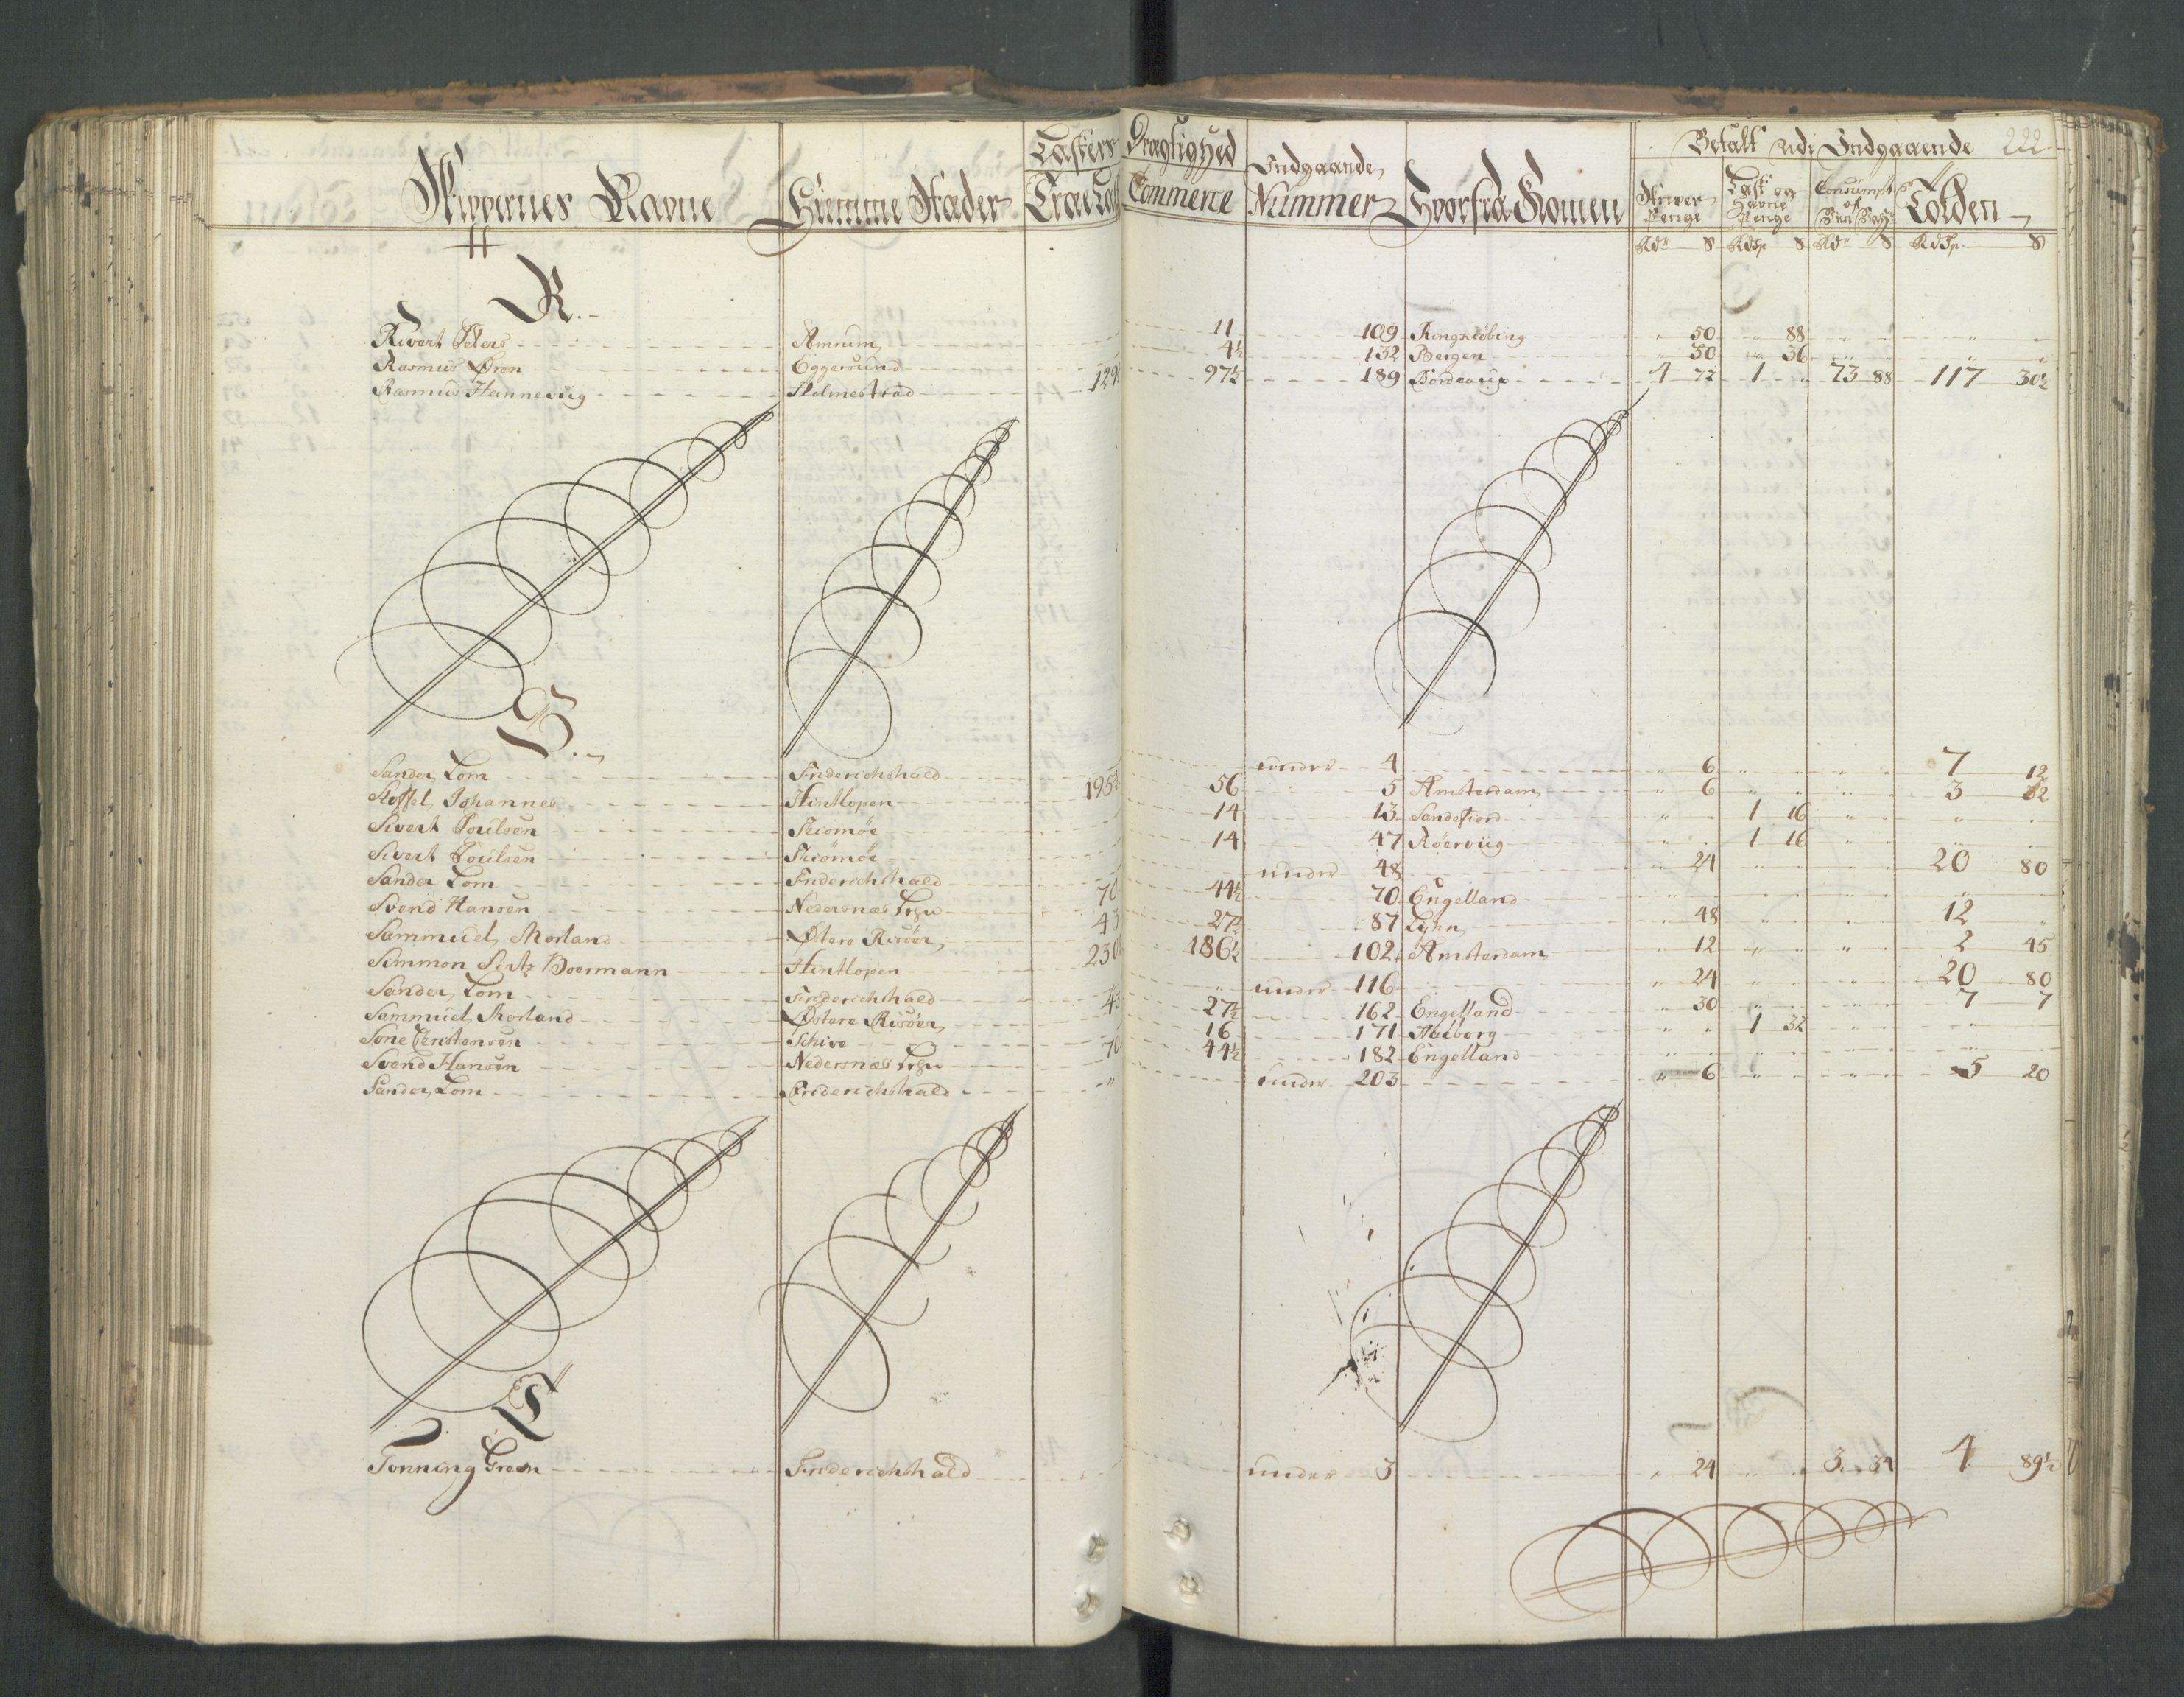 Skippernes Navne Hiemme Stæder Læsters Dragtighed Indgaaende Nummer Hvorfra Kommen Betalt udi Indgaaende 222
Træe Læst Commerce
Penge Læst og Havne Penge Consumpt: af Tolden
Rdr S Rdsp. S Rdr S Rdsp. S
R.
Rivert Peters Amrum 11 109 Ringkiöbing " 50 " 88
Rasmus Øren Eggersund 4½ 132 Bergen " 30 " 36
Rasmus Hannevüg Holmestrad 129 97½ 189 Bordeaux 4 72 1 73 88 117 30½
S.
Sander Lom Friderichshald under 4 " 6 7 12
Stoffel Johannes Hintlopen 195 56 5 Amsterdam " 6 3 32
Sivert Poulsen Skiomöe 14 13 Sandefiord 1 16
Sivert Poulsen Skiömöe 14 47 Röervüg 1 16
Sander Lom Friderichshald under 48 24 20 80
Svend Hansen Nedersnæs 70 44½ 70 Engelland
Sammuel Morland Østere Risöer 43 27½ 87 Lynn 48 12
Simmon Boermann Hintlopen 230 186½ 102 Amsterdam 12 2 45
Sander Lom Friderichshald under 116 24 20 80
Sammuel Morland Østere Risöer 43 27½ 162 Engelland 30 7 7
Sone Christensen Schive 16 171 Aalborg 1 32
Svend Hansen Nedersnæs 70 44½ 182 Engelland
Sander Lom Friderichshald under 203 " 6 5 20
T
Tonning Green Friderichshald under 3 " 24 3 34 4 89½